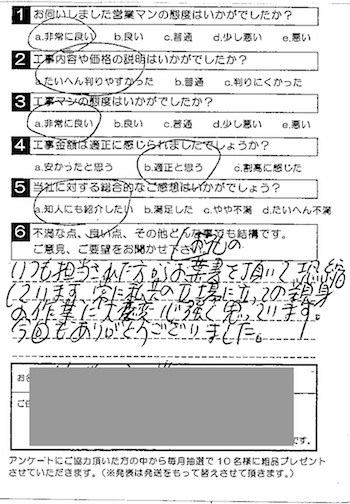 1 お伺いしました営業マンの態度はいかがでしたか?
a.非常に良い b.良い c.普通 d.少し悪い e.悪い
2 工事内容や価格の説明はいかがでしたか?
a.たいへん判りやすかった b.普通 c.判りにくかった
3 工事マンの態度はいかがでしたか?
a.非常に良い b.良い c.普通 d.少し悪い e.悪い
4 工事金額は適正に感じられましたでしょうか?
a.安かったと思う b.適正と思う c.割高に感じた
5 当社に対する総合的なご感想はいかがでしょう?
a.知人にも紹介したい b.満足した c.やや不満 d.たいへん不満
6 不満な点、良い点、その他どんな事でも結構です。
ご意見、ご要望をお聞かせ下さい
いつも担当された方からお葉書を頂いて
しております。常に私共の立場に立っての
の作業に大変心強く思っております。
今回もありがとうございました。
お名
ご住
です。
アンケートにご協力頂いた方の中から毎月抽選で10名様に粗品プレゼント
させていただきます。(※発表は発送をもって替えさせて頂きます。)